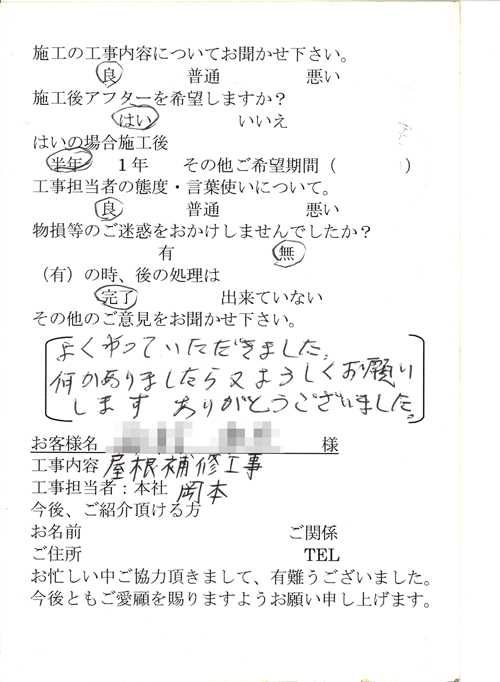 施工の工事内容についてお聞かせ下さい。
良 普通 悪い
施工後アフターを希望しますか？
はい いいえ
はいの場合施工後
半年 1年 その他ご希望期間（ ）
工事担当者の態度・言葉使いについて。
良 普通 悪い
物損等のご迷惑をおかけしませんでしたか？
有 無
（有）の時、後の処理は
完了 出来ていない
その他のご意見をお聞かせ下さい。
よくやっていただきました。
何かありましたら又よろしくお願い
します ありがとうございました。
お客様名 様
工事内容 屋根補修工事
工事担当者：本社 岡本
今後、ご紹介頂ける方
お名前 ご関係
ご住所 TEL
お忙しい中ご協力頂きまして、有難うございました。
今後ともご愛顧を賜りますようお願い申し上げます。